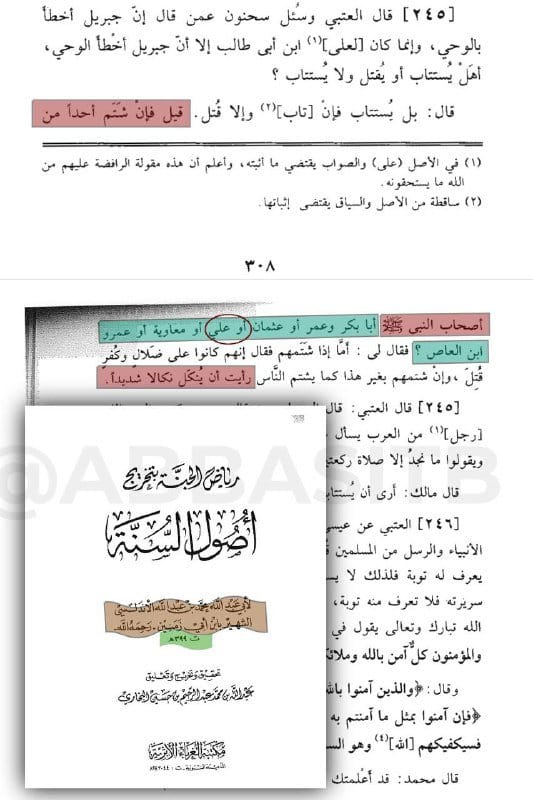 [٢٤٥] قال العتبي وسُئل سحنون عمن قال إنّ جبريل أخطأ
بالوحي، وإنما كان [لعلى](١) ابن أبى طالب إلا أنّ جبريل أخْطأ الوحي،
أهَلْ يُستتاب أو يُقتل ولا يُستتاب ؟
قال: بل يُستتاب فإنْ [تاب](٢) وإلا قُتل. قيل فإنْ شَتَم أحداً من
(١) في الأصل (على) والصواب يقتضي ما أثبته، وأعلم أن هذه مقولة الرافضة عليهم من
الله ما يستحقونه.
(٢) ساقطة من الأصل والسياق يقتضى إثباتها.
٣٠٨
أصحاب النبي ﷺ أبا بكر وعمر أو عثمان أو علي أو معاوية أو عمرو
ابن العاص ؟ فقال لى : أمَّا إذا شَتَمهم فقال إنهم كانوا على ضلال وكُفرٍ
قُتِلَ ، وإنْ شتمهم بغير هذا كما يشتم النَّاس رأيت أن يُنكّل نكالا شديداً.
[٢٤٥] قال العتبي: قال
[رجل](١) من العرب يسأل
ويقولوا ما نجدُ إلا صلاة ركعتين
قال مالك: أرى أن يُستتاب
[٢٤٦] العتبي عن عيسى
الأنبياء والرسل من المسلمين
يعرف له توبة فلذلك لا
سريرته فلا تعرف منه توبة،
الله تبارك وتعالى يقول في
والمؤمنون كلٌ آمن بالله وملائكته
وقال: ﴿والذين آمنوا بالله
﴿فإن آمنوا بمثل ما آمنتم به
فسيكفيكهم [الله](٤) وهو
قال محمد: قد أعْلمتك
@ABBASITB
رياض الجنّة بتخريج
أصول السنّة
لأبي عبد الله محمد بن عبد الله الأندلسي
الشهير بابن أبي زمنين - رحمه الله -
ت ٣٩٩ هـ
تحقيق وتخريج وتعليق
عبد الله بن محمد عبد الرحيم بن حسين البخاري
مكتبة الغرباء الأثرية